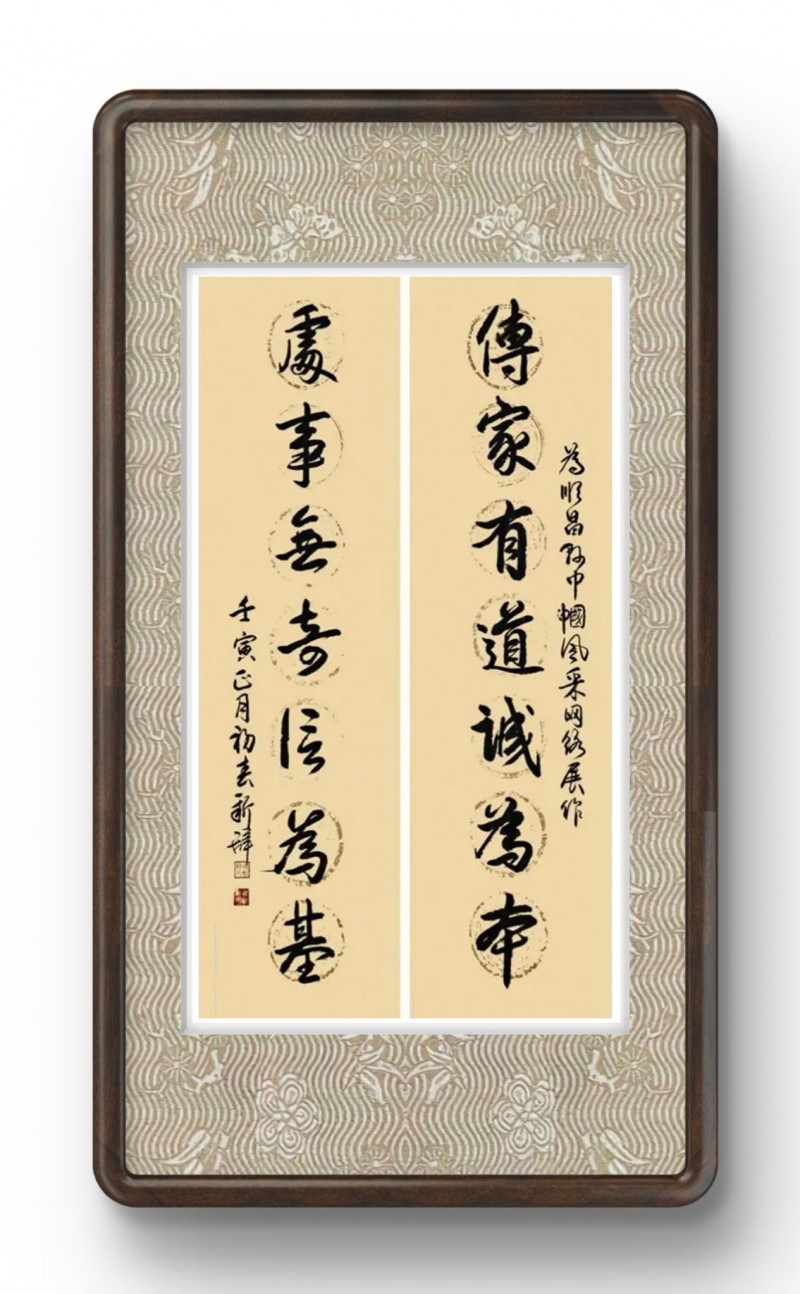 為順昌縣巾帼風采网络展作
傳家有道誠為本
處事無奇信為基
壬寅正月初春新譁